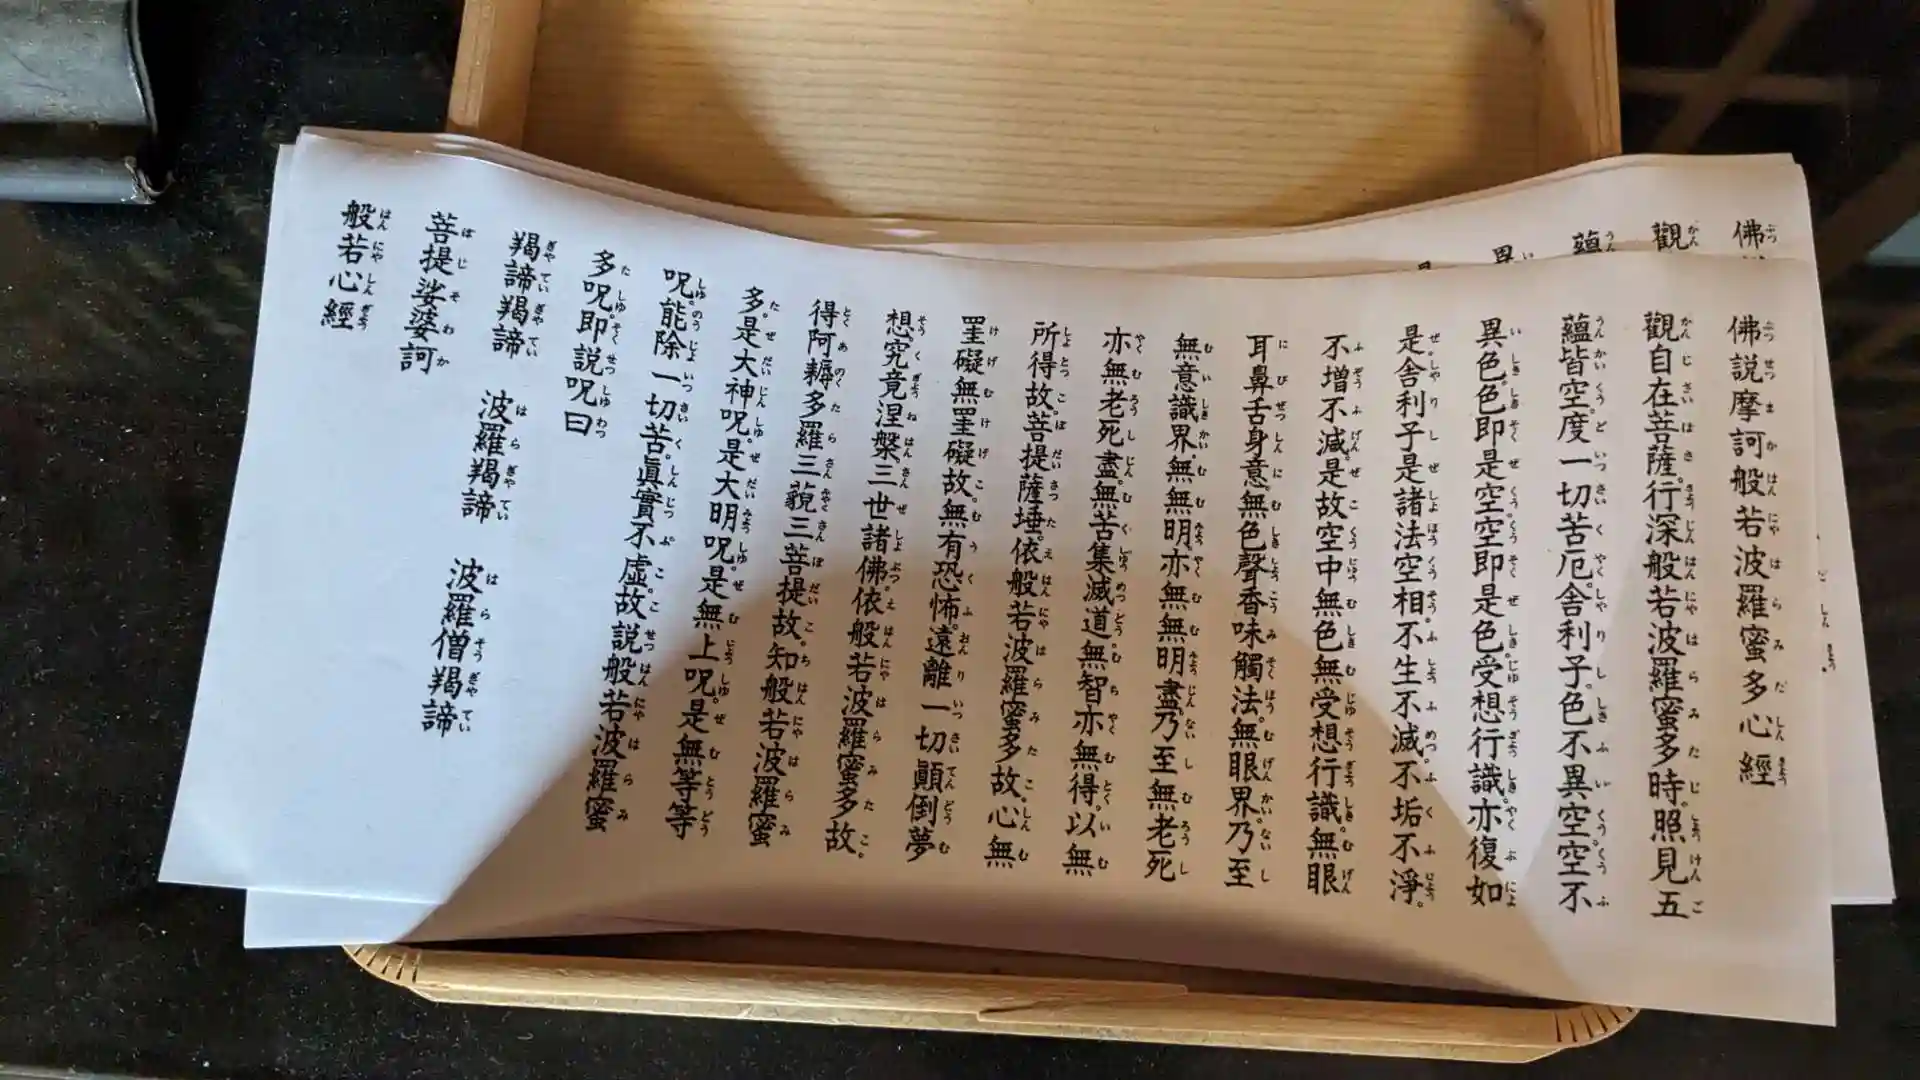 佛説摩訶般若波羅蜜多心經
觀自在菩薩。行深般若波羅蜜多時。照見五
蘊皆空。度一切苦厄。舍利子。色不異空。空不
異色。色即是空。空即是色。受想行識。亦復如
是。舍利子。是諸法空相。不生不滅。不垢不淨。
不増不減。是故空中。無色無受想行識。無眼
耳鼻舌身意。無色聲香味觸法。無眼界。乃至
無意識界。無無明。亦無無明盡。乃至無老死
亦無老死盡。無苦集滅道。無智亦無得。以無
所得故。菩提薩埵。依般若波羅蜜多故。心無
罣礙無罣礙故。無有恐怖。遠離一切顚倒夢
想。究竟涅槃三世諸佛。依般若波羅蜜多故。
得阿耨多羅三藐三菩提故。知般若波羅蜜
多。是大神呪。是大明呪。是無上呪。是無等等
呪。能除一切苦。眞實不虛。故説般若波羅蜜
多呪。即説呪曰
羯諦羯諦 波羅羯諦 波羅僧羯諦
菩提娑婆訶
般若心經
佛
觀
蘊
異